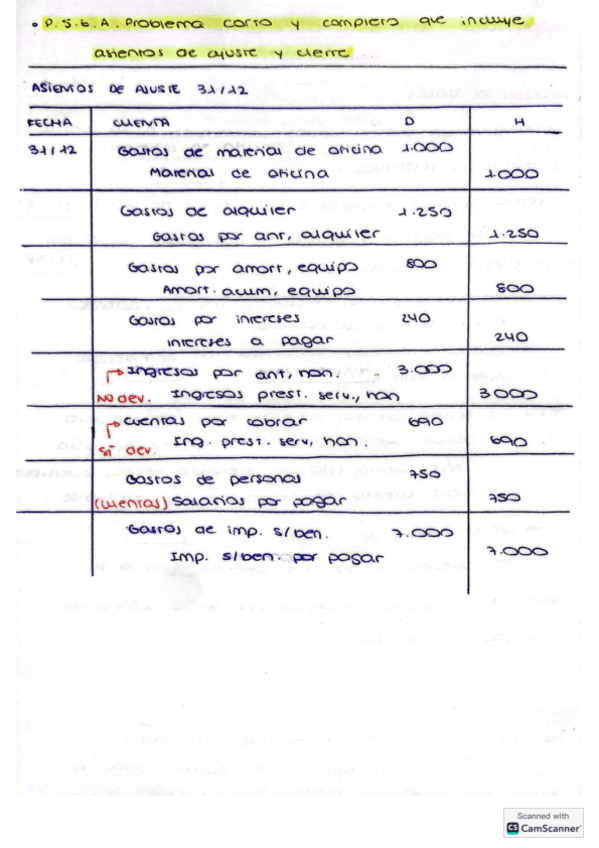 • P.5.6.A. Problema corto y completo que incluye
asientos de ajuste y cierre
ASIENTOS DE AJUSTE 31/12
FECHA CUENTA D H
31/12 Gastos de material de oficina 1.000
Material de oficina 1.000
Gastos de alquiler 1.250
Gastos por ant, alquiler 1.250
Gastos por amort, equipo 800
Amort. acum, equipo 800
Gastos por intereses 240
intereses a pagar 240
Ingresos por ant, hon. 3.000
NO dev. Ingresos prest. serv., hon 3000
Cuentas por cobrar 690
sí dev. Ing. prest. serv, hon. 690
Gastos de personas 750
(cuentas) Salarios por pagar 750
Gastos de imp. s/ben. 7.000
Imp. s/ben por pagar 7.000
Scanned with
CS CamScanner